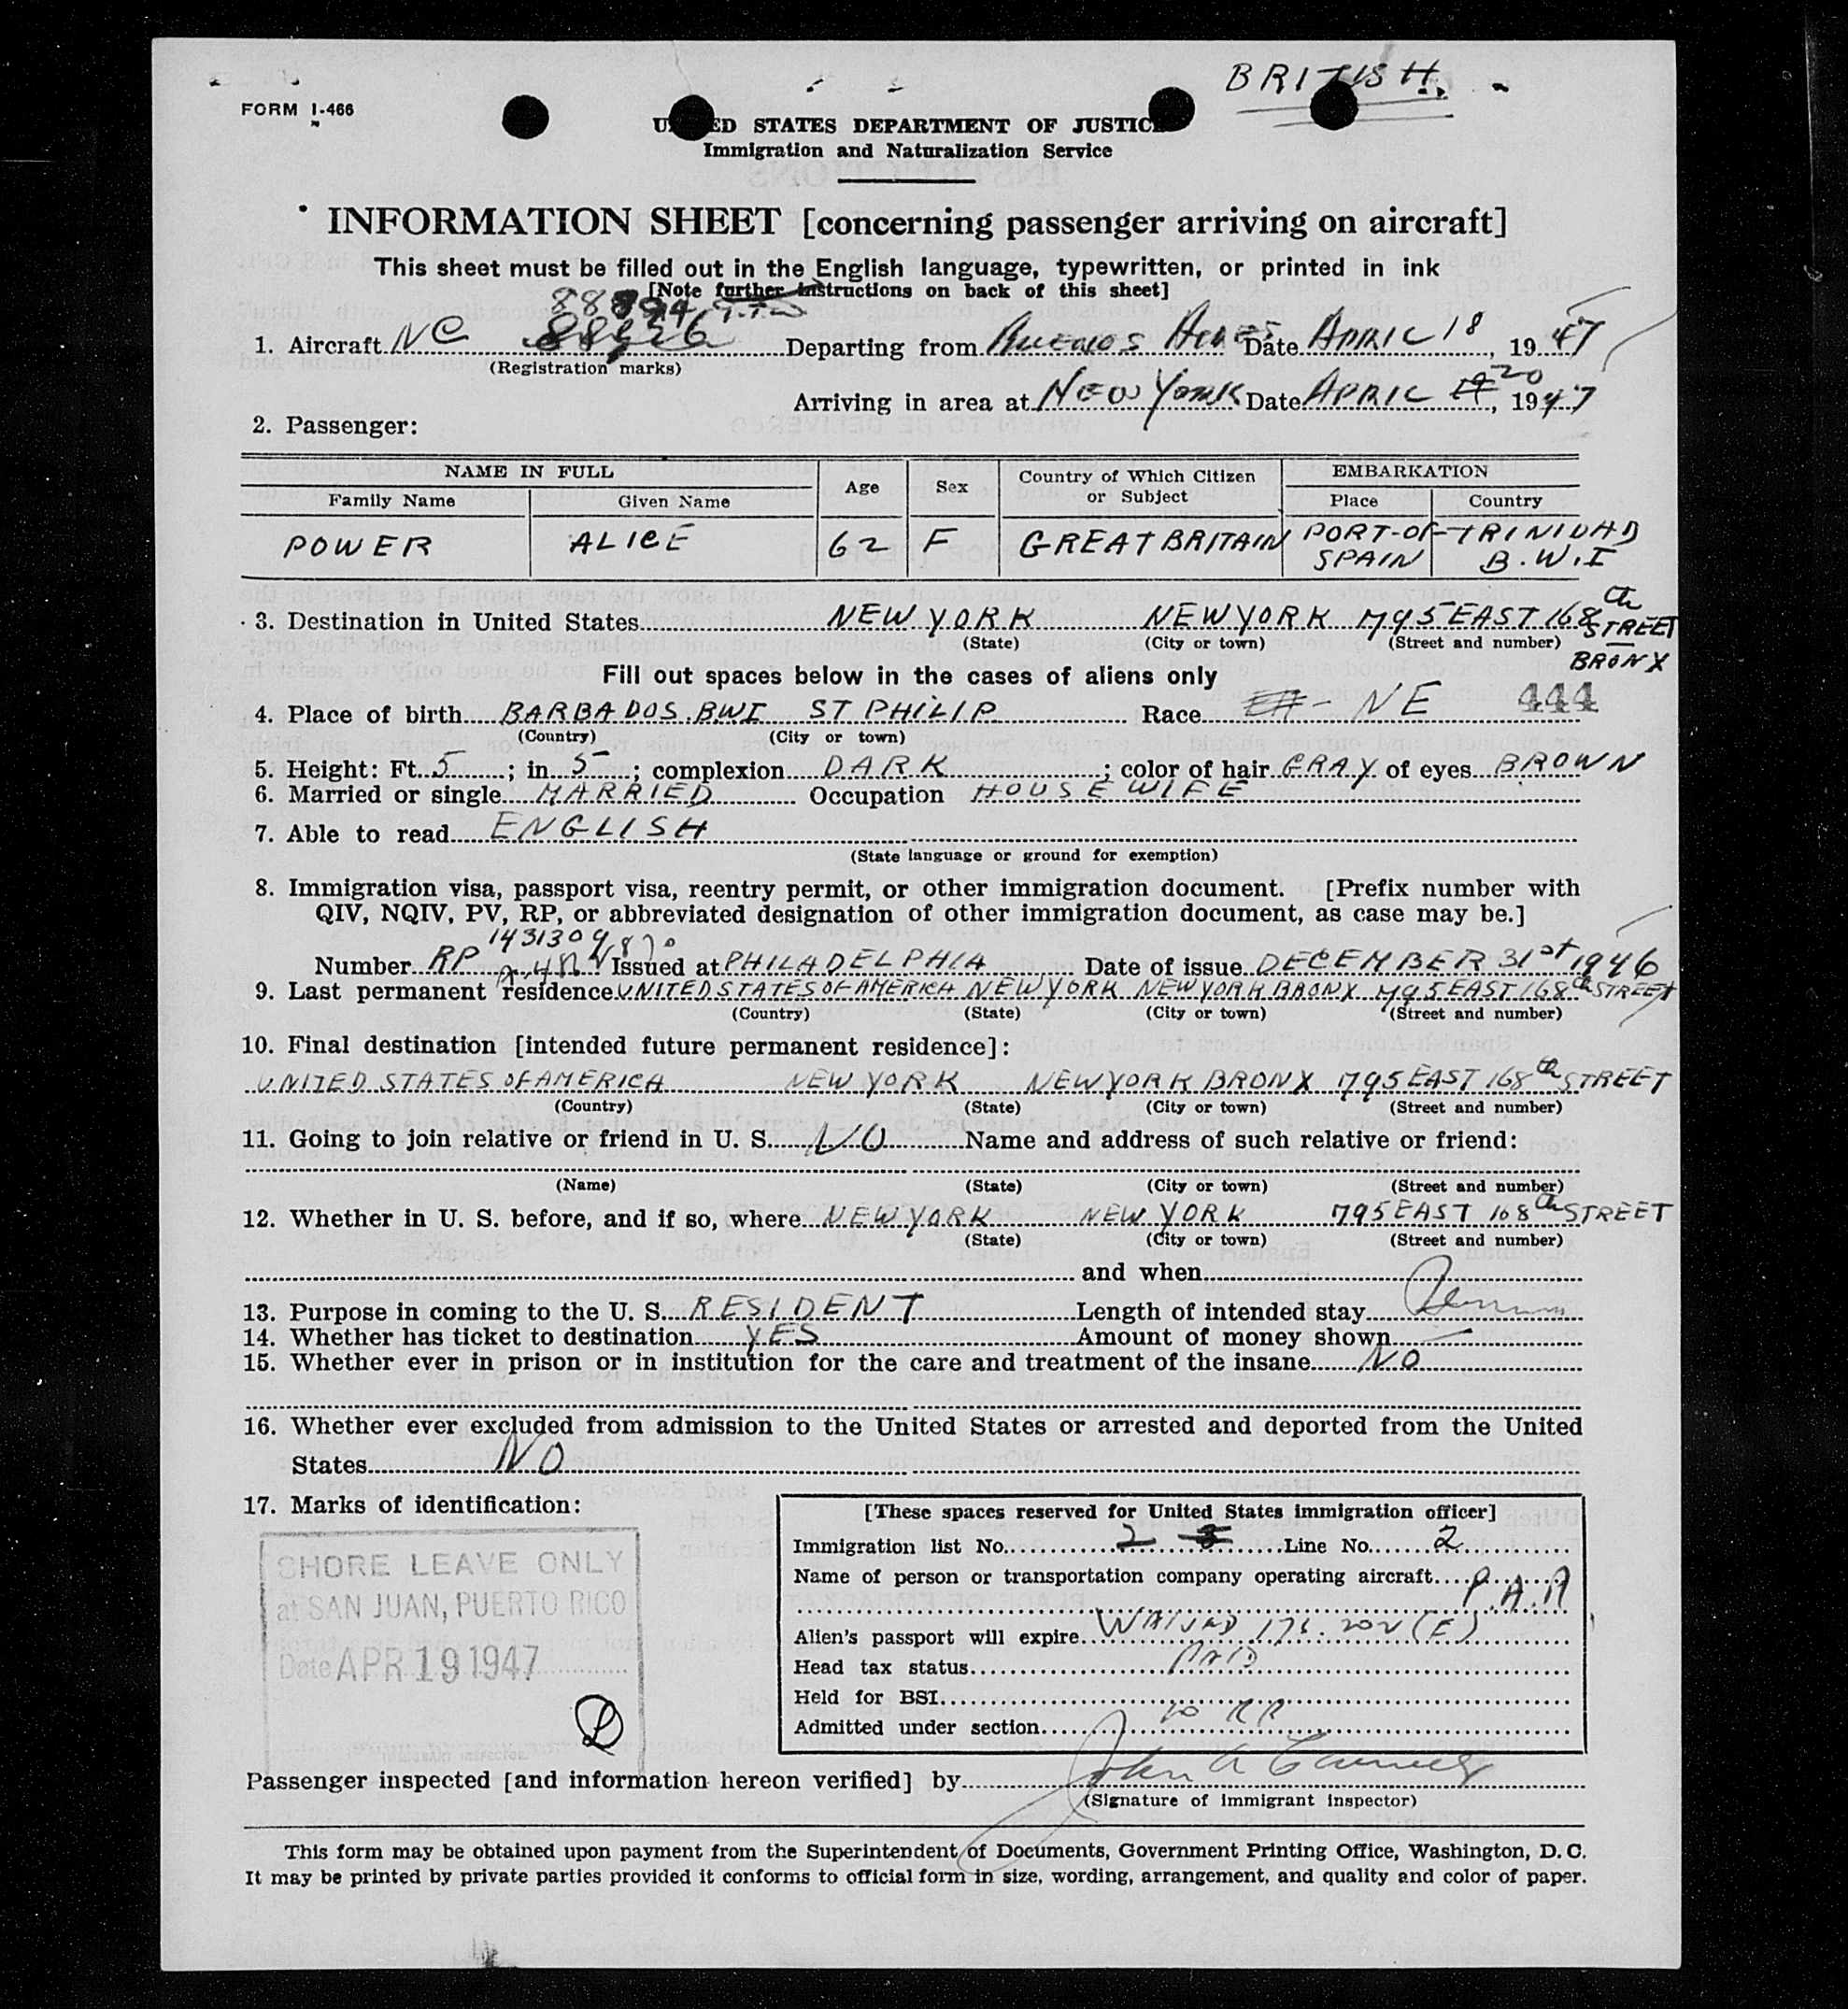 BRITISH
FORM I-466
ED STATES DEPARTMENT OF JUSTIC
Immigration and Naturalization Service
INFORMATION SHEET [concerning passenger arriving on aircraft]
This sheet must be filled out in the English language, typewritten, or printed in ink
[Note further instructions on back of this sheet]
1. Aircraft NC Departing from BUENOS AIRES Date APRIL 18, 1947
(Registration marks)
Arriving in area at NEW YORK Date APRIL 20, 1947
2. Passenger:
NAME IN FULL Age Sex Country of Which Citizen or Subject EMBARKATION
Family Name Given Name Place Country
POWER ALICE 62 F GREAT BRITAIN PORT-OF-SPAIN TRINIDAD B.W.I
3. Destination in United States NEW YORK NEW YORK 795 EAST 168th STREET BRONX
(State) (City or town) (Street and number)
Fill out spaces below in the cases of aliens only
4. Place of birth BARBADOS. BWI ST PHILIP Race NE 444
(Country) (City or town)
5. Height: Ft. 5; in 5; complexion DARK; color of hair GRAY of eyes BROWN
6. Married or single MARRIED Occupation HOUSEWIFE
7. Able to read ENGLISH
(State language or ground for exemption)
8. Immigration visa, passport visa, reentry permit, or other immigration document. [Prefix number with
QIV, NQIV, PV, RP, or abbreviated designation of other immigration document, as case may be.]
Number RP 1431309 Issued at PHILADELPHIA Date of issue DECEMBER 31st 1946
9. Last permanent residence UNITED STATES OF AMERICA NEW YORK NEW YORK BRONX 795 EAST 168th STREET
(Country) (State) (City or town) (Street and number)
10. Final destination [intended future permanent residence]:
UNITED STATES OF AMERICA NEW YORK NEW YORK BRONX 795 EAST 168th STREET
(Country) (State) (City or town) (Street and number)
11. Going to join relative or friend in U. S. NO Name and address of such relative or friend:
(Name) (State) (City or town) (Street and number)
12. Whether in U. S. before, and if so, where NEW YORK NEW YORK 795 EAST 168th STREET
(State) (City or town) (Street and number)
and when
13. Purpose in coming to the U. S. RESIDENT Length of intended stay
14. Whether has ticket to destination YES Amount of money shown —
15. Whether ever in prison or in institution for the care and treatment of the insane NO
16. Whether ever excluded from admission to the United States or arrested and deported from the United
States NO
17. Marks of identification:
SHORE LEAVE ONLY
at SAN JUAN, PUERTO RICO
Date APR 19 1947
[These spaces reserved for United States immigration officer]
Immigration list No. 2 Line No. 2
Name of person or transportation company operating aircraft P.A.A
Alien's passport will expire WAIVED 176.202(E)
Head tax status PAID
Held for BSI
Admitted under section
Passenger inspected [and information hereon verified] by John A
(Signature of immigrant inspector)
This form may be obtained upon payment from the Superintendent of Documents, Government Printing Office, Washington, D. C.
It may be printed by private parties provided it conforms to official form in size, wording, arrangement, and quality and color of paper.